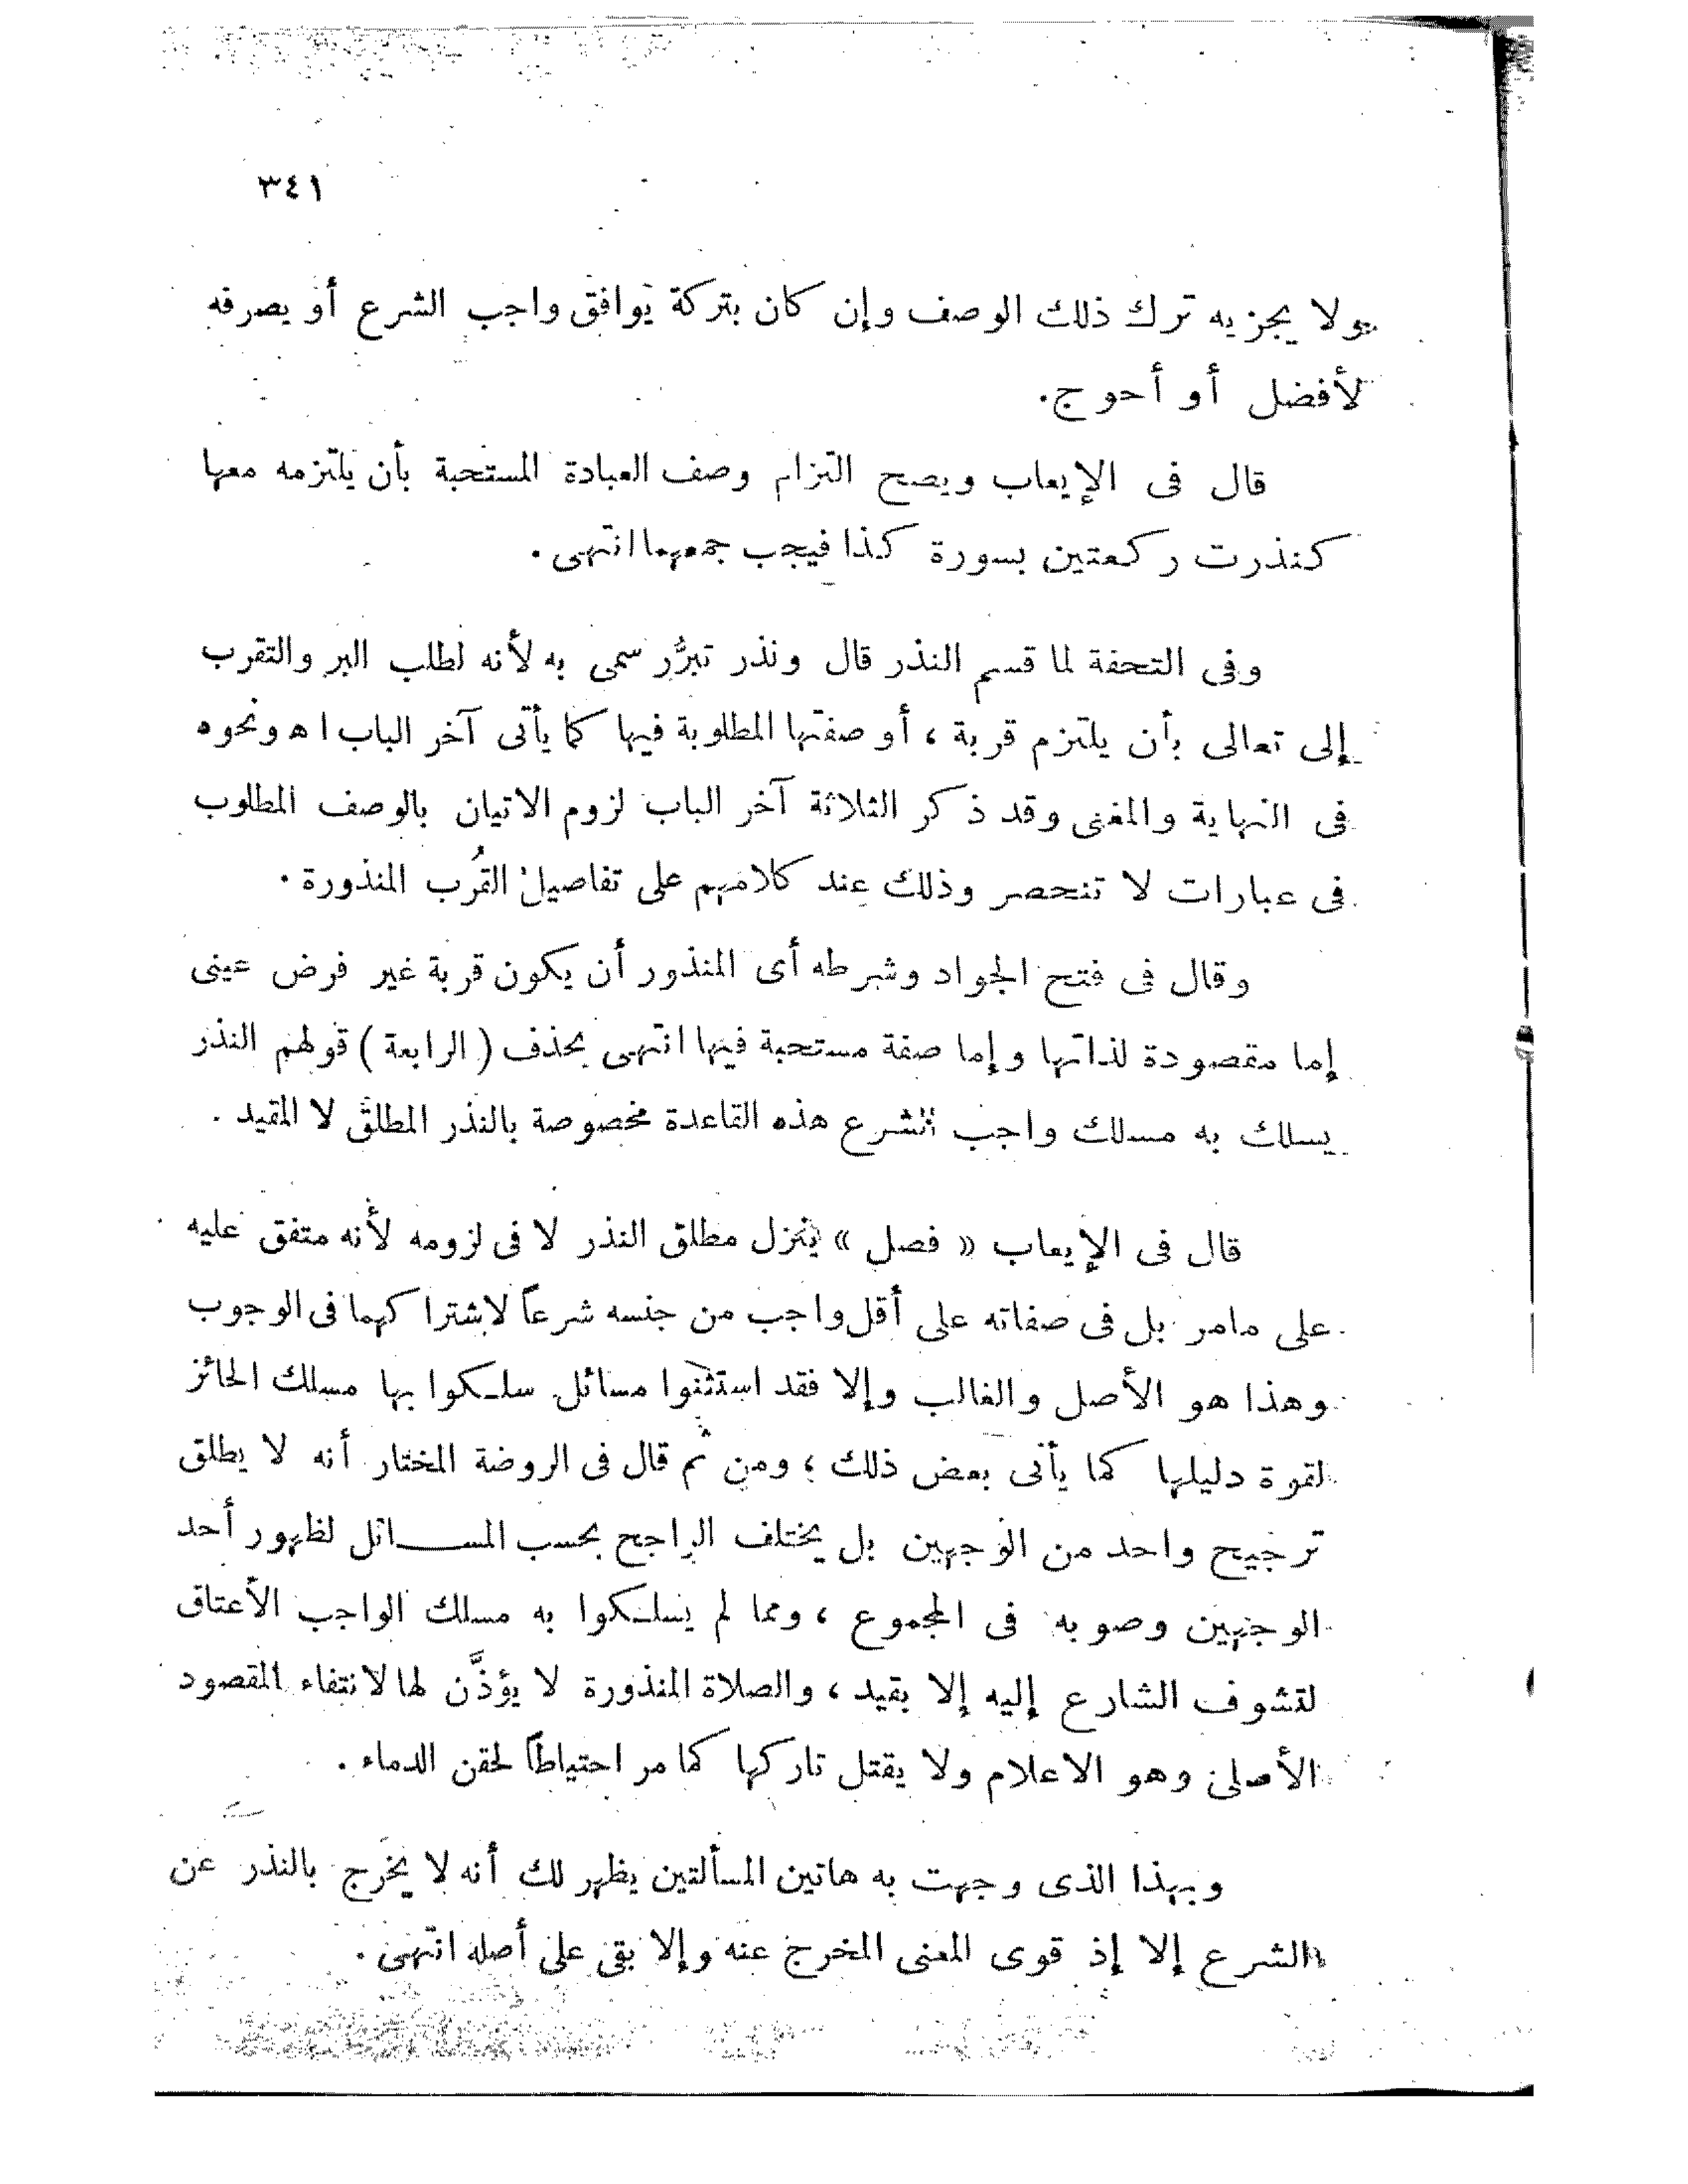 ٣٤١
ولا يجزيه ترك ذلك الوصف وإن كان بتركة يوافق واجب الشرع أو يصرفه
لأفضل أو أحوج.
قال فى الإيعاب ويصح التزام وصف العبادة المستحبة بأن يلتزمه معها
كنذرت ركعتين بسورة كذا فيجب جمعهما انتهى .
وفى التحفة لما قسم النذر قال ونذر تبرُّر سمى به لأنه لطلب البر والتقرب
إلى تعالى بأن يلتزم قربة ، أو صفتها المطلوبة فيها كما يأتى آخر الباب اه ونحوه
فى النهاية والمغنى وقد ذكر الثلاثة آخر الباب لزوم الاتيان بالوصف المطلوب
فى عبارات لا تنحصر وذلك عند كلامهم على تفاصيل القُرب المنذورة .
وقال فى فتح الجواد وشرطه أى المنذور أن يكون قربة غير فرض عينى
إما مقصودة لذاتها وإما صفة مستحبة فيها انتهى بحذف ( الرابعة ) قولهم النذر
يسلك به مسلك واجب الشرع هذه القاعدة مخصوصة بالنذر المطلق لا المقيد .
قال فى الإيعاب « فصل » ينزل مطلق النذر لا فى لزومه لأنه متفق عليه
على مامر بل فى صفاته على أقل واجب من جنسه شرعاً لاشتراكهما فى الوجوب
وهذا هو الأصل والغالب وإلا فقد استثنوا مسائل سلكوا بها مسلك الجائز
لقوة دليلها كما يأتى بعض ذلك ؛ ومن ثم قال فى الروضة المختار أنه لا يطلق
ترجيح واحد من الوجهين بل يختلف الراجح بحسب المسائل لظهور أحد
الوجهين وصوبه فى المجموع ، ومما لم يسلكوا به مسلك الواجب الأعتاق
لتشوف الشارع إليه إلا بقيد ، والصلاة المنذورة لا يؤذَّن لها لانتفاء المقصود
الأصلى وهو الاعلام ولا يقتل تاركها كما مر احتياطاً لحقن الدماء .
وبهذا الذى وجهت به هاتين المسألتين يظهر لك أنه لا يخرج بالنذر عن
الشرع إلا إذ قوى المعنى المخرج عنه وإلا بقى على أصله انتهى .